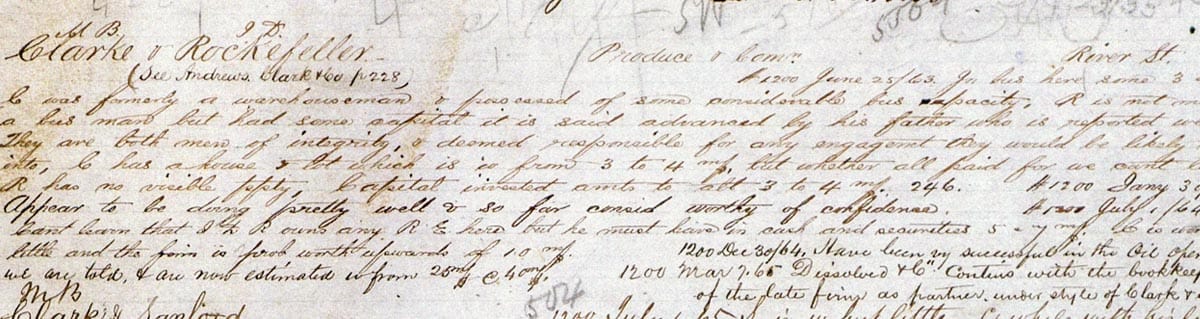 M B. J. D.
Clarke & Rockefeller. Produce & Comn. River St.
(See Andrews, Clark & Co p 228) #1200 June 25/63. In bus here some 3
C was formerly a warehouseman & possessed of some considerable bus capacity. R is not
a bus man but had some capital it is said advanced by his father who is reported
They are both men of integrity, & deemed responsible for any engagemt they would be likely
into, C has a house & lot which is wo from 3 to 4 m$, but whether all paid for we cant
R has no visible ppty, Capital invested amts to abt 3 to 4 m$. 246. #1200 Jany 3
Appear to be doing pretty well & so far consid worthy of confidence. #1200 July 1/64
cant learn that J D R owns any R E here but he must have in cash and securities 5 m$. C is
little and the firm is prob worth upwards of 10 m$. 1200 Dec 30/64. Have been vy successful in the Oil
we are told, & are now estimated wo from 25m$ @ 40m$, 1200 Mar 7. 65 Dissolved & "C" Contins with the
504 of the late firm as partner under style of Clark &
M B
Clark & Sanford 1200 July